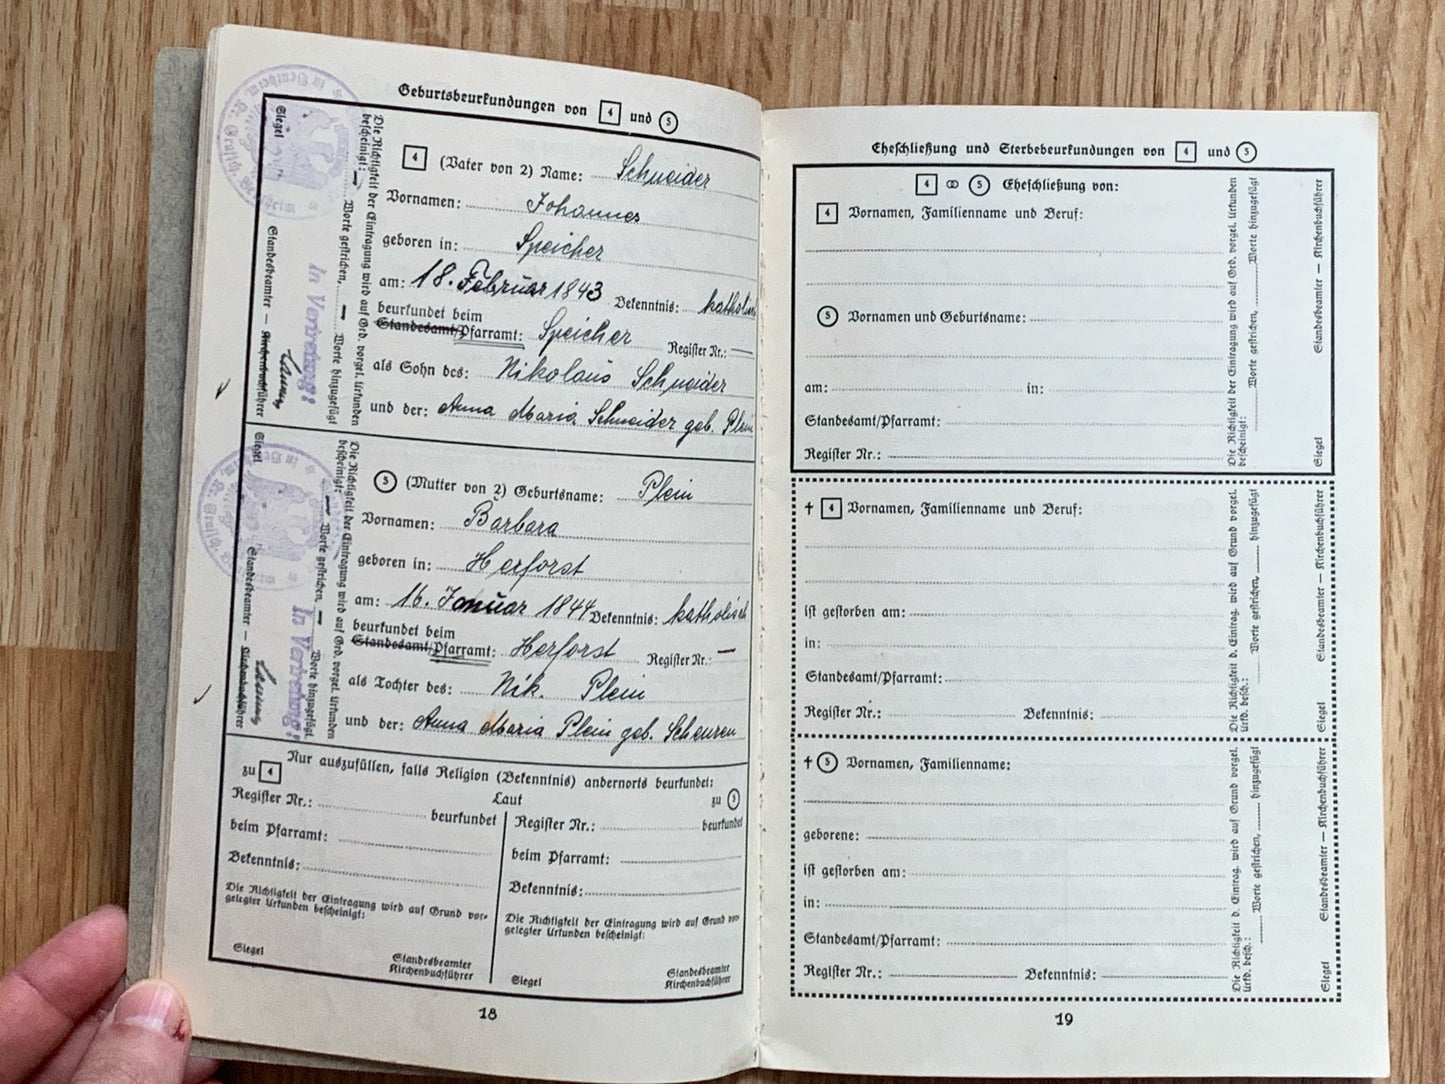 Geburtsbeurkundungen von 4 und 5
4 (Vater von 2) Name: Schneider
Vornamen: Johannes
geboren in: Speicher
am: 18. Februar 1843 Bekenntnis: katholisch
beurkundet beim
Standesamt/Pfarramt: Speicher Register Nr.: —
als Sohn des: Nikolaus Schneider
und der: Anna Maria Schneider geb. Plein
Die Richtigkeit der Eintragung wird auf Grd. vorgel. Urkunden
bescheinigt: — Worte gestrichen, — Worte hinzugefügt
In Vertretung:
Siegel Standesbeamter — Kirchenbuchführer
5 (Mutter von 2) Geburtsname: Plein
Vornamen: Barbara
geboren in: Herforst
am: 16. Januar 1844 Bekenntnis: katholisch
beurkundet beim
Standesamt/Pfarramt: Herforst Register Nr.: —
als Tochter des: Nik. Plein
und der: Anna Maria Plein geb. Scheuren
Die Richtigkeit der Eintragung wird auf Grd. vorgel. Urkunden
bescheinigt: — Worte gestrichen, — Worte hinzugefügt
In Vertretung:
Siegel Standesbeamter — Kirchenbuchführer
Nur auszufüllen, falls Religion (Bekenntnis) andernorts beurkundet:
zu 4 Laut zu 5
Register Nr.: beurkundet
beim Pfarramt:
Bekenntnis:
Die Richtigkeit der Eintragung wird auf Grund vor-
gelegter Urkunden bescheinigt:
Siegel Standesbeamter
Kirchenbuchführer
Register Nr.: beurkundet
beim Pfarramt:
Bekenntnis:
Die Richtigkeit der Eintragung wird auf Grund vor-
gelegter Urkunden bescheinigt:
Siegel Standesbeamter
Kirchenbuchführer
18
Eheschließung und Sterbebeurkundungen von 4 und 5
4 ⚭ 5 Eheschließung von:
4 Vornamen, Familienname und Beruf:
5 Vornamen und Geburtsname:
am: in:
Standesamt/Pfarramt:
Register Nr.:
Die Richtigkeit der Eintragung wird auf Grd. vorgel. Urkunden
bescheinigt: Worte gestrichen, Worte hinzugefügt
Siegel Standesbeamter — Kirchenbuchführer
† 4 Vornamen, Familienname und Beruf:
ist gestorben am:
in:
Standesamt/Pfarramt:
Register Nr.: Bekenntnis:
Die Richtigkeit d. Eintrag. wird auf Grund vorgel.
Urkd. besch.: Worte gestrichen, hinzugefügt
Siegel Standesbeamter — Kirchenbuchführer
† 5 Vornamen, Familienname:
geborene:
ist gestorben am:
in:
Standesamt/Pfarramt:
Register Nr.: Bekenntnis:
Die Richtigkeit d. Eintrag. wird auf Grund vorgel.
Urkd. besch.: Worte gestrichen, hinzugefügt
Siegel Standesbeamter — Kirchenbuchführer
19